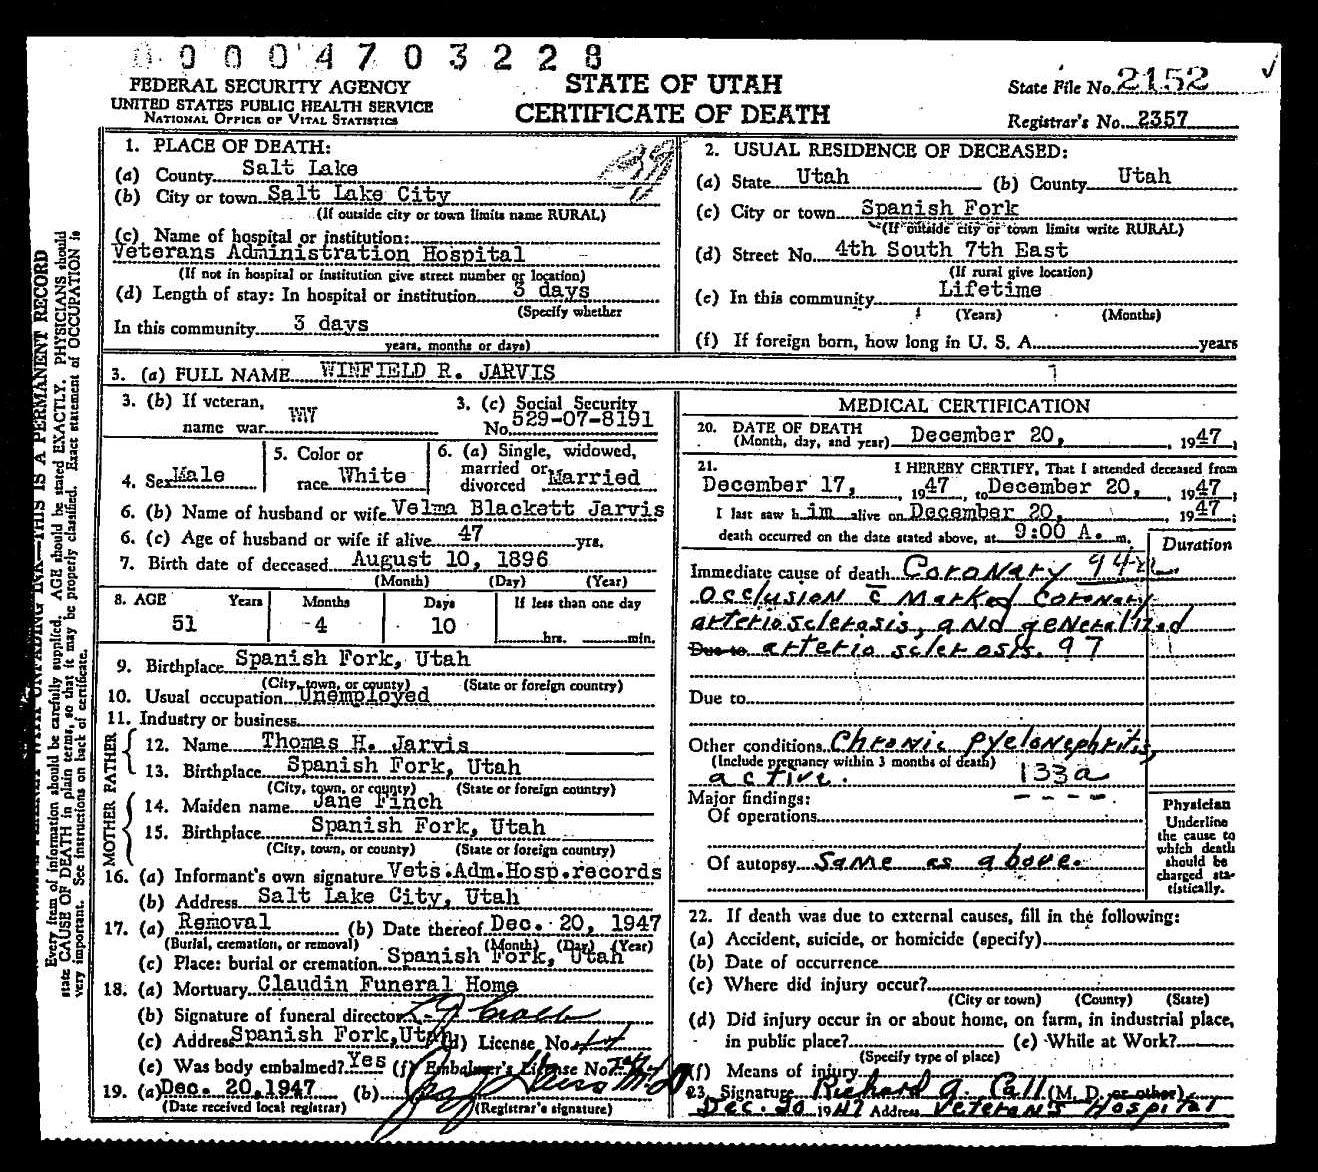 00004703228
FEDERAL SECURITY AGENCY
UNITED STATES PUBLIC HEALTH SERVICE
NATIONAL OFFICE OF VITAL STATISTICS
STATE OF UTAH
CERTIFICATE OF DEATH
State File No. 2152
Registrar's No. 2357
1. PLACE OF DEATH:
(a) County Salt Lake
(b) City or town Salt Lake City
(If outside city or town limits name RURAL)
(c) Name of hospital or institution:
Veterans Administration Hospital
(If not in hospital or institution give street number or location)
(d) Length of stay: In hospital or institution 3 days
(Specify whether
In this community 3 days
years, months or days)
2. USUAL RESIDENCE OF DECEASED:
(a) State Utah (b) County Utah
(c) City or town Spanish Fork
(If outside city or town limits write RURAL)
(d) Street No. 4th South 7th East
(If rural give location)
(e) In this community Lifetime
(Years) (Months)
(f) If foreign born, how long in U. S. A. years
3. (a) FULL NAME WINFIELD R. JARVIS
3. (b) If veteran,
name war
3. (c) Social Security
No. 529-07-8191
4. Sex Male
5. Color or
race White
6. (a) Single, widowed,
married or
divorced Married
6. (b) Name of husband or wife Velma Blackett Jarvis
6. (c) Age of husband or wife if alive 47 yrs.
7. Birth date of deceased August 10, 1896
(Month) (Day) (Year)
8. AGE Years Months Days If less than one day
51 4 10 hrs. min.
9. Birthplace Spanish Fork, Utah
(City, town, or county) (State or foreign country)
10. Usual occupation Unemployed
11. Industry or business
FATHER
12. Name Thomas H. Jarvis
13. Birthplace Spanish Fork, Utah
(City, town, or county) (State or foreign country)
MOTHER
14. Maiden name Jane Finch
15. Birthplace Spanish Fork, Utah
(City, town, or county) (State or foreign country)
16. (a) Informant's own signature Vets.Adm.Hosp.records
(b) Address Salt Lake City, Utah
17. (a) Removal (b) Date thereof Dec. 20, 1947
(Burial, cremation, or removal) (Month) (Day) (Year)
(c) Place: burial or cremation Spanish Fork, Utah
18. (a) Mortuary Claudin Funeral Home
(b) Signature of funeral director
(c) Address Spanish Fork,Utah (d) License No.
(e) Was body embalmed? Yes (f) Embalmer's License No.
19. (a) Dec. 20,1947 (b)
(Date received local registrar) (Registrar's signature)
MEDICAL CERTIFICATION
20. DATE OF DEATH
(Month, day, and year) December 20, 1947
21. I HEREBY CERTIFY, That I attended deceased from
December 17, 1947, to December 20, 1947
I last saw him alive on December 20, 1947
death occurred on the date stated above, at 9:00 A. m.
Duration
Immediate cause of death Coronary 94
Occlusion c̄ Marked Coronary
arteriosclerosis, and generalized
Due to arterio sclerosis. 97
Due to
Other conditions Chronic pyelonephritis,
(Include pregnancy within 3 months of death)
active. 133a
Major findings:
Of operations
Of autopsy Same as above.
Physician
Underline
the cause to
which death
should be
charged sta-
tistically.
22. If death was due to external causes, fill in the following:
(a) Accident, suicide, or homicide (specify)
(b) Date of occurrence
(c) Where did injury occur?
(City or town) (County) (State)
(d) Did injury occur in or about home, on farm, in industrial place,
in public place? (e) While at Work?
(Specify type of place)
(f) Means of injury
23. Signature Richard G. Call (M. D. or other)
Dec. 20 1947 Address Veteran's Hospital
THIS IS A PERMANENT RECORD
Every item of information should be carefully supplied. AGE should be stated EXACTLY. PHYSICIANS should
state CAUSE OF DEATH in plain terms, so that it may be properly classified. Exact statement of OCCUPATION is
very important. See instructions on back of certificate.